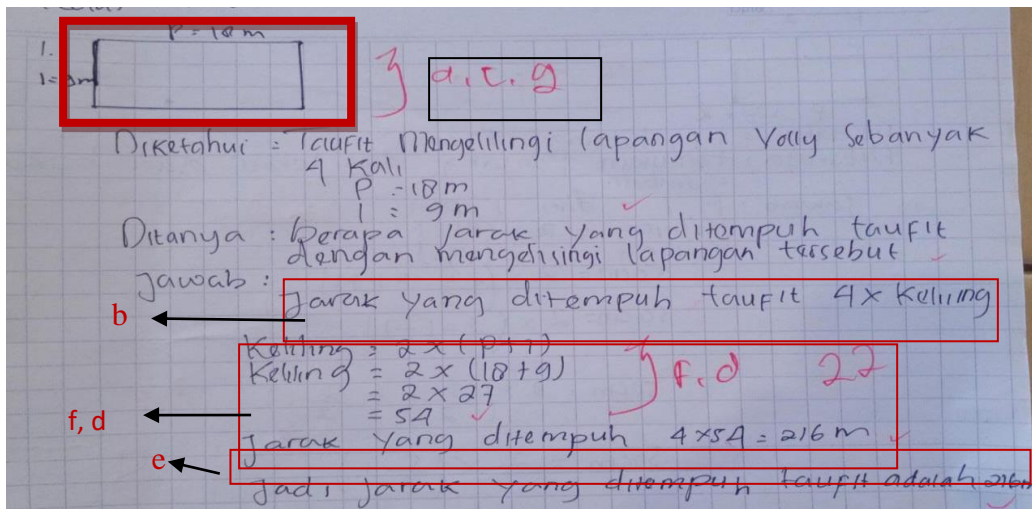 P = 18 m
1.
l = 9m
a. c. g
Diketahui : Taufit Mengelilingi lapangan Volly Sebanyak
4 Kali
P = 18 m
l = 9 m
Ditanya : berapa Jarak yang ditempuh taufit
dengan mengelilingi lapangan tersebut
Jawab :
Jarak yang ditempuh taufit 4 x Keliling
b
Keliling = 2 x (P + l)
Keliling = 2 x (18 + 9)
f. d 22
= 2 x 27
= 54
f, d
Jarak yang ditempuh 4 x 54 = 216 m
e
Jadi Jarak yang ditempuh taufit adalah 216m